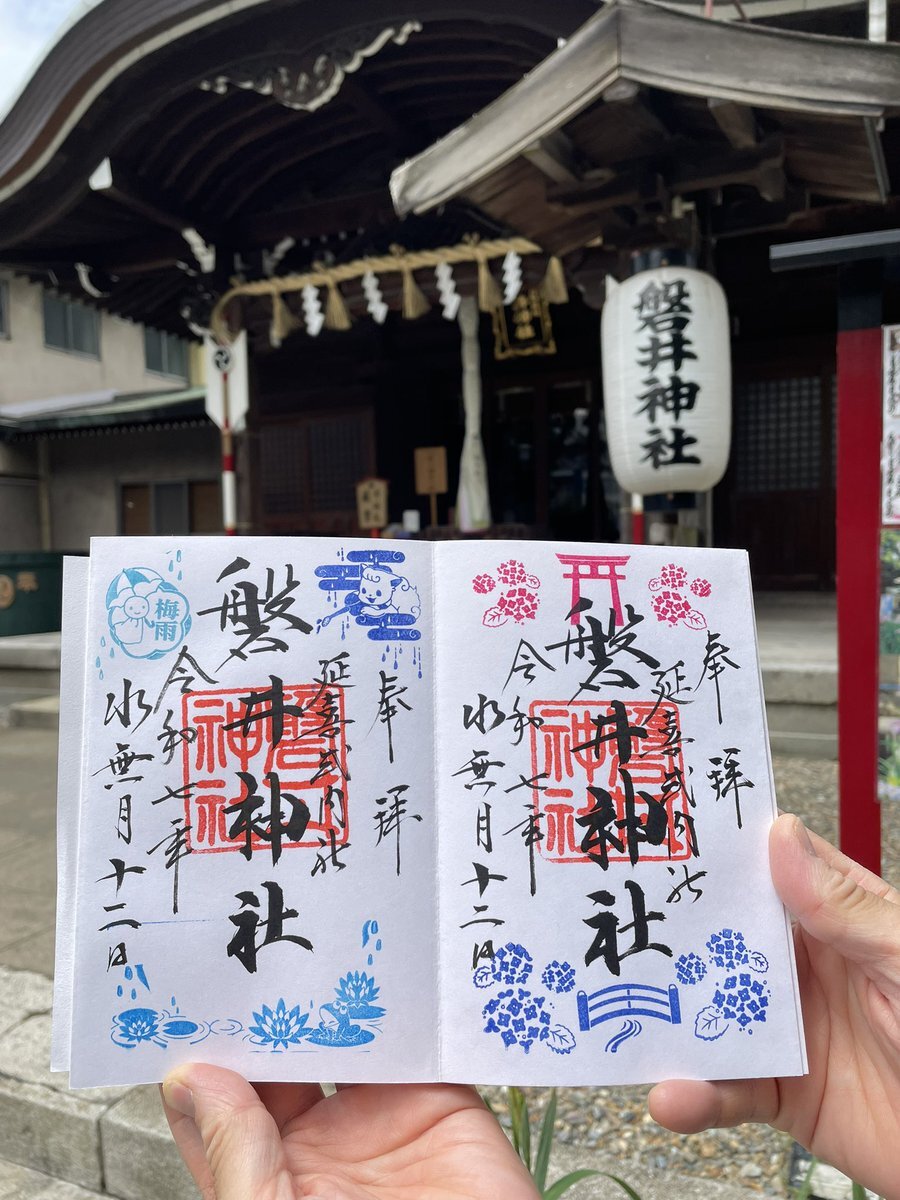 磐井神社
梅雨
奉拝
延喜式内社
磐井神社
磐井神社
令和七年
水無月十二日
奉拝
延喜式内社
磐井神社
磐井神社
令和七年
水無月十二日